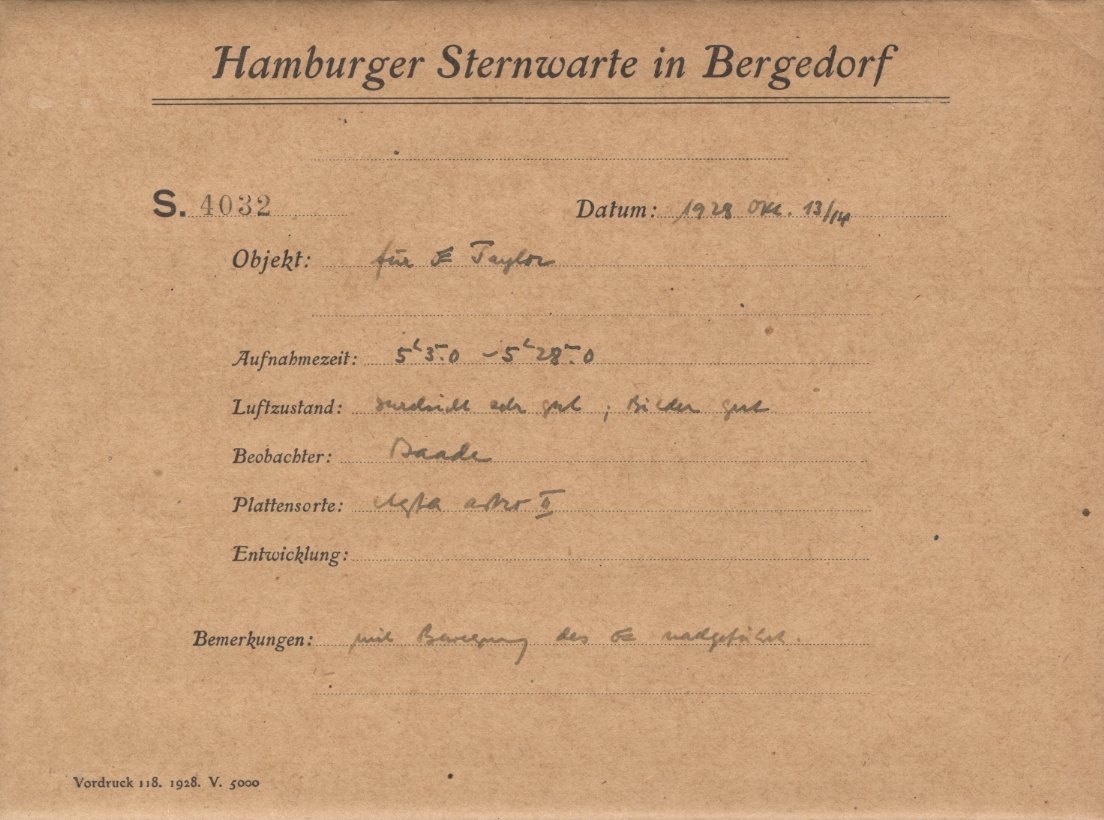 Hamburger Sternwarte in Bergedorf
S. 4032 Datum: 1928 Okt. 13/14
Objekt: für ☄ Taylor
Aufnahmezeit: 5ʰ3ᵐ.0 – 5ʰ28ᵐ.0
Luftzustand: Durchsicht sehr gut; Bilder gut
Beobachter: Baade
Plattensorte: Agfa astro II
Entwicklung:
Bemerkungen: mit Bewegung des ☄ nachgeführt.
Vordruck 118. 1928. V. 5000